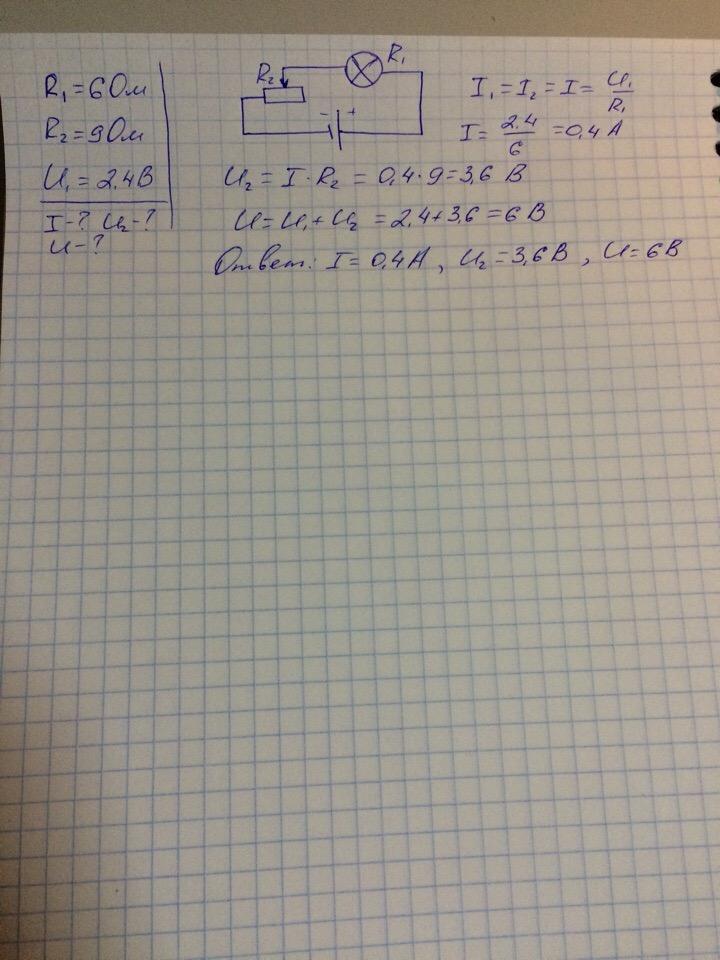 R₁ = 6 Ом
R₂ = 9 Ом
U₁ = 2,4 В
I - ? U₂ - ?
U - ?
R₂
R₁
- +
I₁ = I₂ = I = U₁/R₁
I = 2,4/6 = 0,4 А
U₂ = I · R₂ = 0,4 · 9 = 3,6 В
U = U₁ + U₂ = 2,4 + 3,6 = 6 В
Ответ: I = 0,4 А , U₂ = 3,6 В , U = 6 В